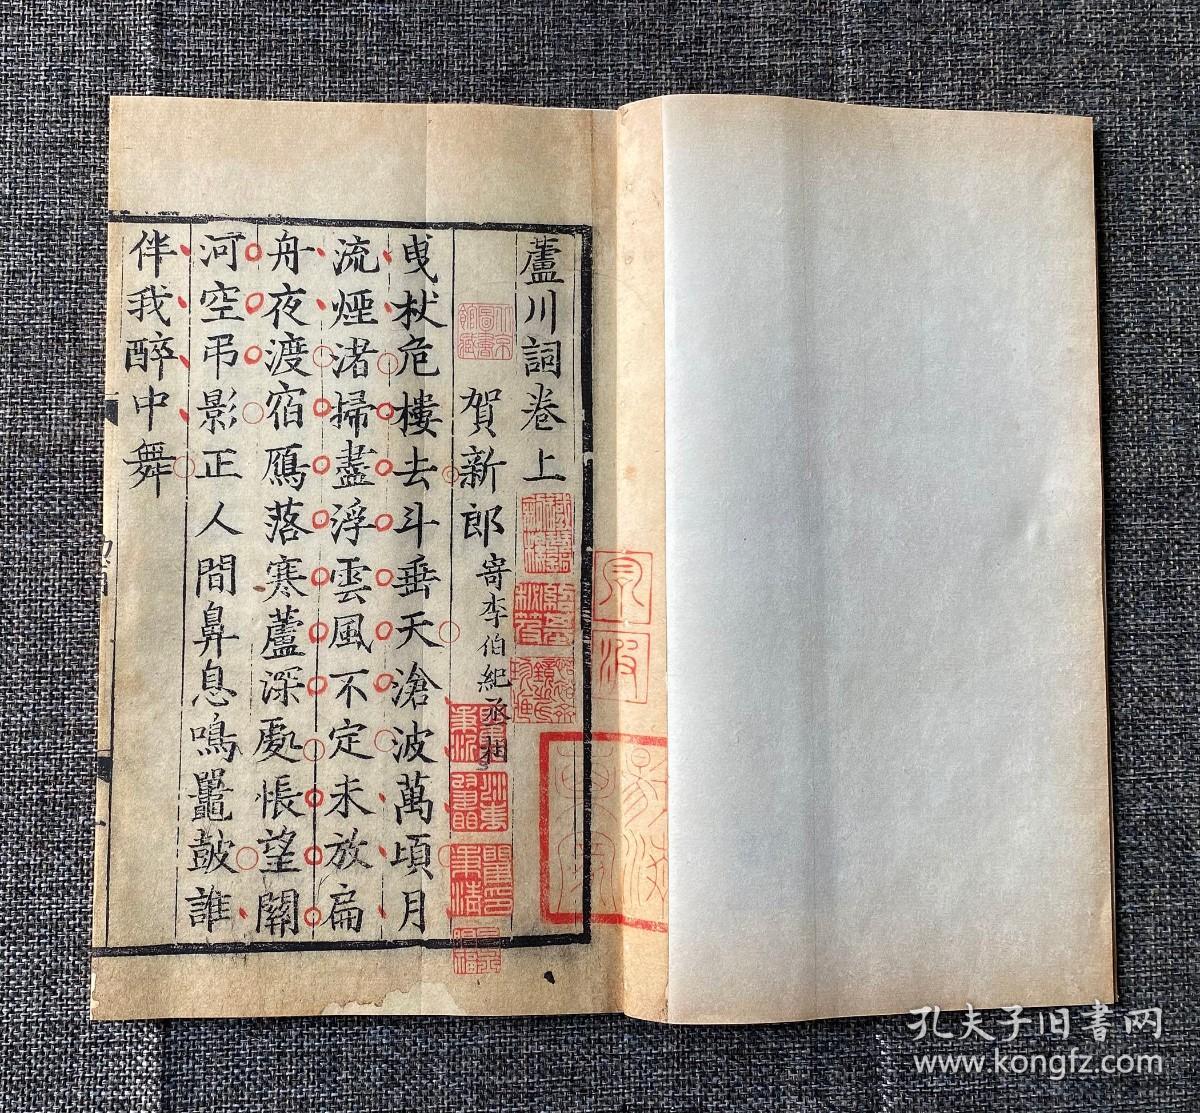 蘆川詞卷上
賀新郎 寄李伯紀丞相
曵杖危樓去斗垂天滄波萬頃月
流煙渚掃盡浮雲風不定未放扁
舟夜渡宿鴈落寒蘆深處悵望關
河空弔影正人間鼻息鳴鼉鼓誰
伴我醉中舞
孔夫子旧書网
www.kongfz.com